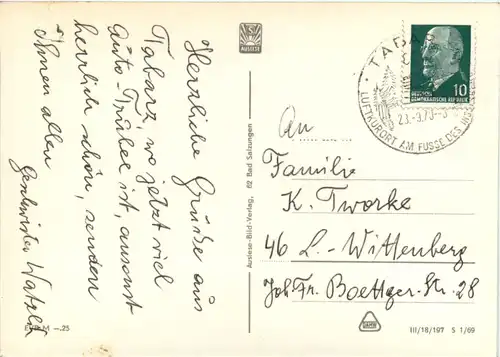 Herrliche Grüße aus
Tabarz, wo jetzt viel
Auto-Trubel ist, ansonst
herrlich schön, senden
Ihnen allen
Geschwister
EVP M -.25
AUSLESE
Auslese-Bild-Verlag, 62 Bad Salzungen
DEUTSCHE
DEMOKRATISCHE REPUBLIK
10
LUFTKURORT AM FUSSE DES
23.-9.70-
An
Familie
K. Tworke
46 L.-Wittenberg
Joh. Fr. Boettger-Str. 28
III/18/197 S 1/69